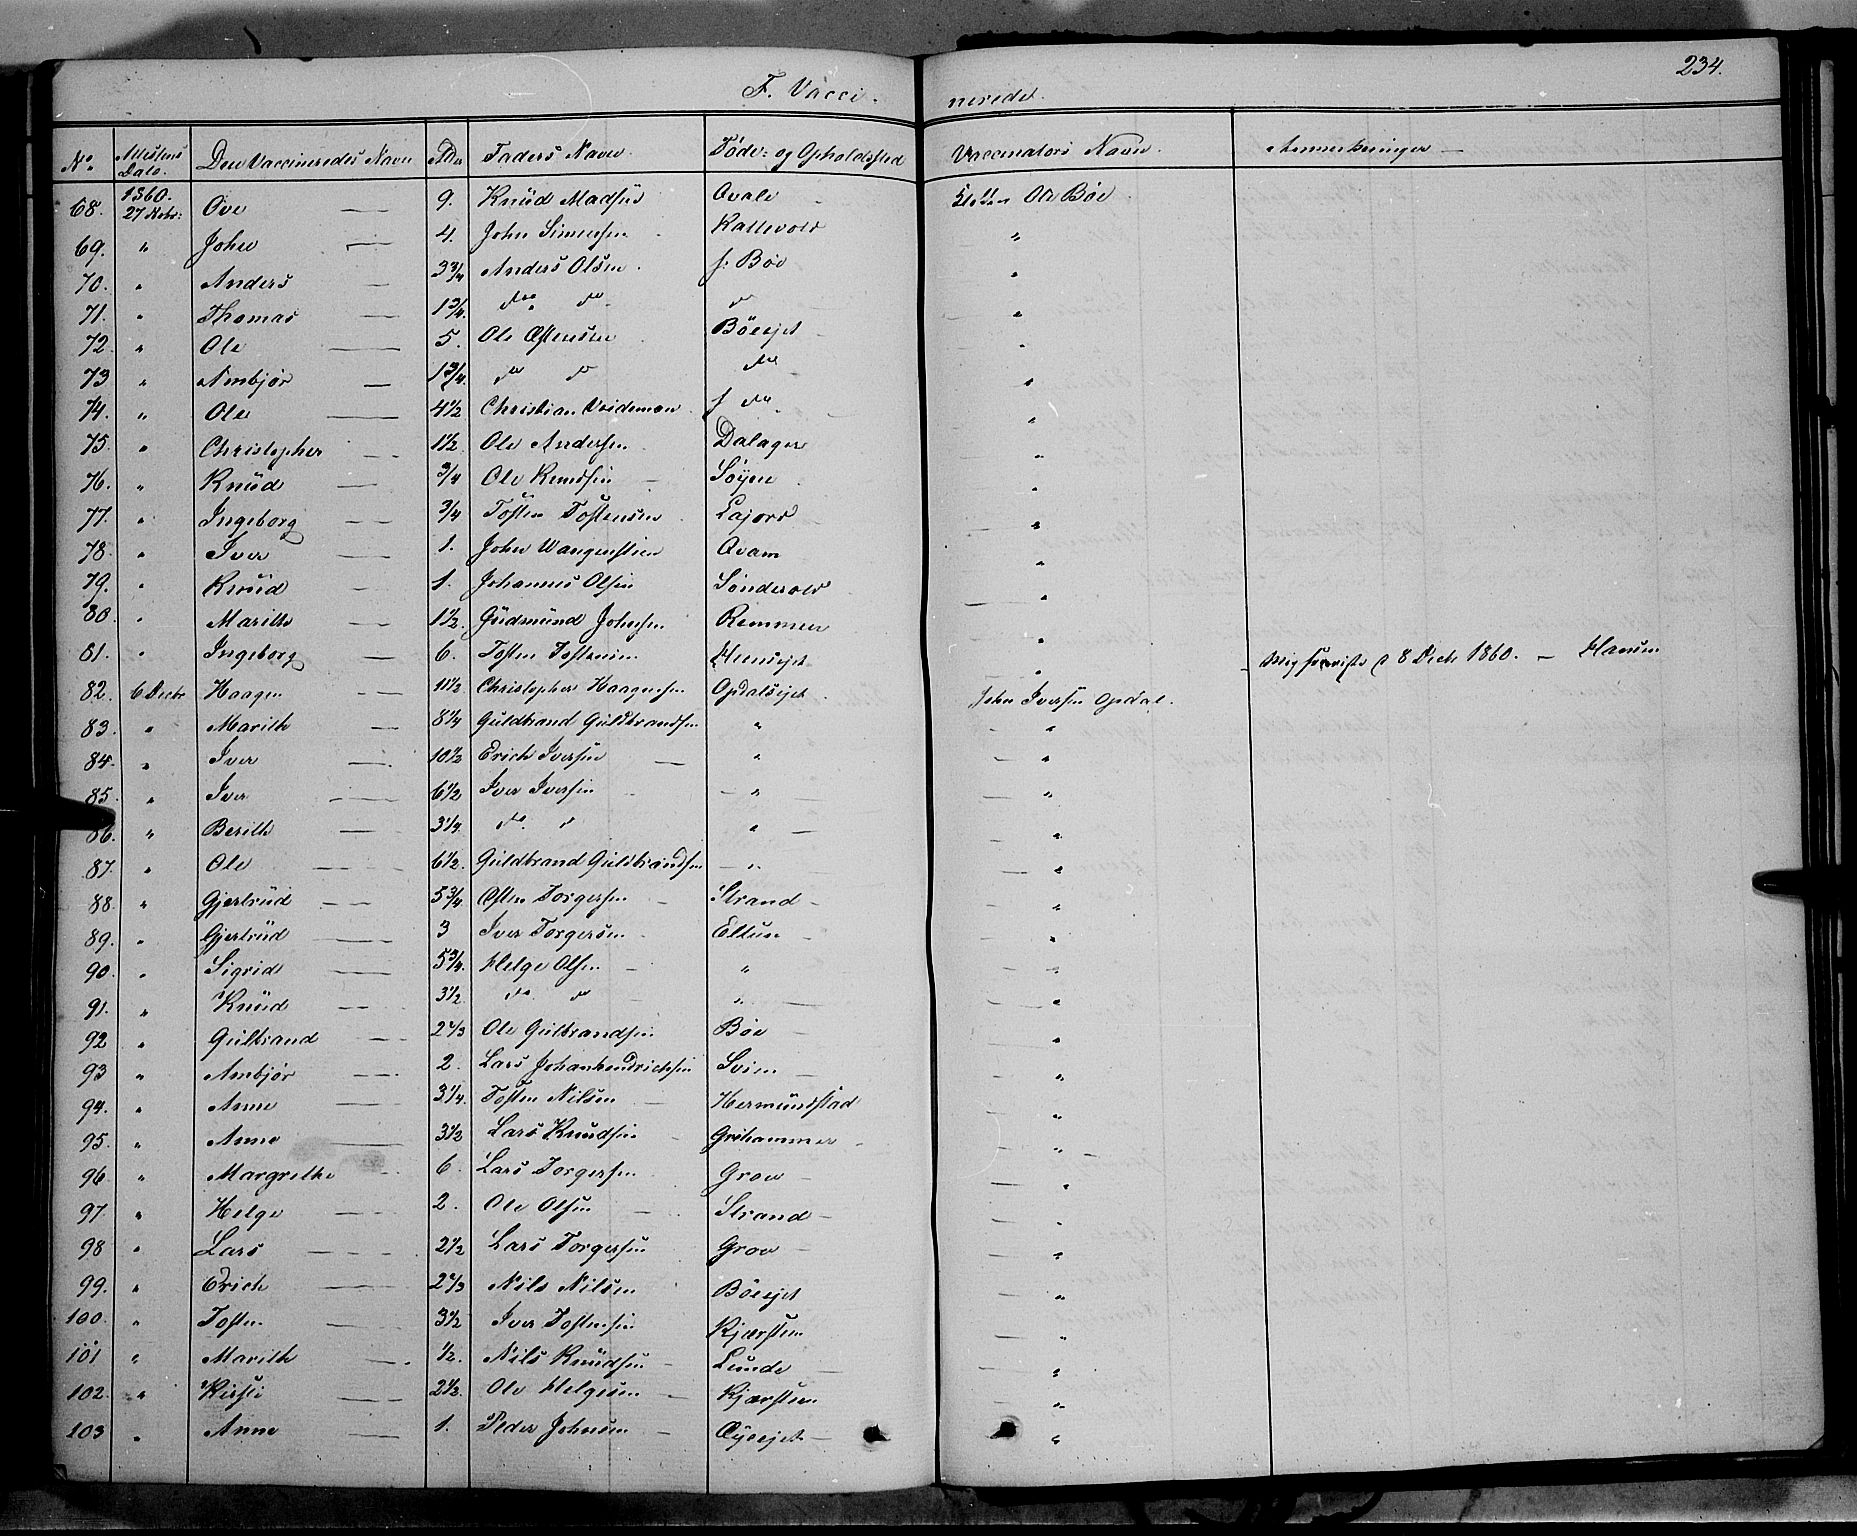 234.
F. Vacci- nerede.
No. Attestens Dato. Den Vaccineredes Navn Alder Faders Navn Føde- og Opholdssted Vaccinators Navn Anmerkninger
68. 1860. 27 Nobr: Ove 9. Knüd Madsen Qvale Ole Bøe
69. " John 4. John Simensen Kattevold "
70. " Anders 3 3/4 Anders Olsen f. Bøe "
71. " Thomas 1 3/4. do do do "
72. " Ole 5. Ole Østensen Bøeejet "
73 " Ambjør 1 3/4. do do do "
74. " Ole 4 1/2 Christian f do "
75. " Christopher 1 1/2. Ole Andersen Dalager "
76. " Knüd 3/4 Ole Knudsen Søyne "
77. " Ingeborg 3/4 Tosten Tostensen Lajord "
78. " Iver 1. John Wangensteen Qvam "
79. " Knüd 1. Johannes Olsen Sønderold "
80. " Marith 1 1/2. Güdmünd Johnsen Remmen "
81. " Ingeborg 6. Tosten Tostensen " 8 Decb 1860. Hansen
82. 6 Decbr Haagen 11 1/2. Christopher Haagensen Opdalsejet John Iversen Opdal.
83. " Marith 8 1/4 Guldbrand Guldbrandsen " "
84. " Iver 10 1/2 Erich Iversen " "
85. " Iver 6 1/2 Iver Iversen " "
86. " Berith 3 1/4. do. d " "
87. " Ole 6 1/2. Güldbrand Güldbrandsen " "
88. " Gjertrüd 5 3/4 Østen Torgersen Strand "
89. " Gjertrüd 3 Iver Torgersen Eltun "
90. " Sigrid 5 3/4. Helge Olsen " "
91. " Knüd 3 1/2 do. do " "
92 " Gülbrand 2 2/3 Ole Gülbrandsen Bøe "
93 " Ambjør 2. Lars Johanhendrichsen Sviin "
94. " Anne 3 1/4. Tosten Nilsen Hermündstad "
95. " Anne 3 1/2 Lars Knudsen Grihammer "
96 " Margrethe 6. Lars Torgersen Grov "
97. " Helge 2. Ole Olsen Strand "
98 " Lars 2 1/2 Lars Torgersen Grov "
99. " Erich 2 2/3 Nils Nilsen Bøeejet "
100. " Tosten 3 1/2 Iver Tostensen Kjærsten "
101 " Marith 1/2. Nils Knüdsen Lunde "
102. " Kirsti 2 1/2. Ole Helgesen Kjærsten "
103 " Anne 1. Peder Johnsen Øyeejet "